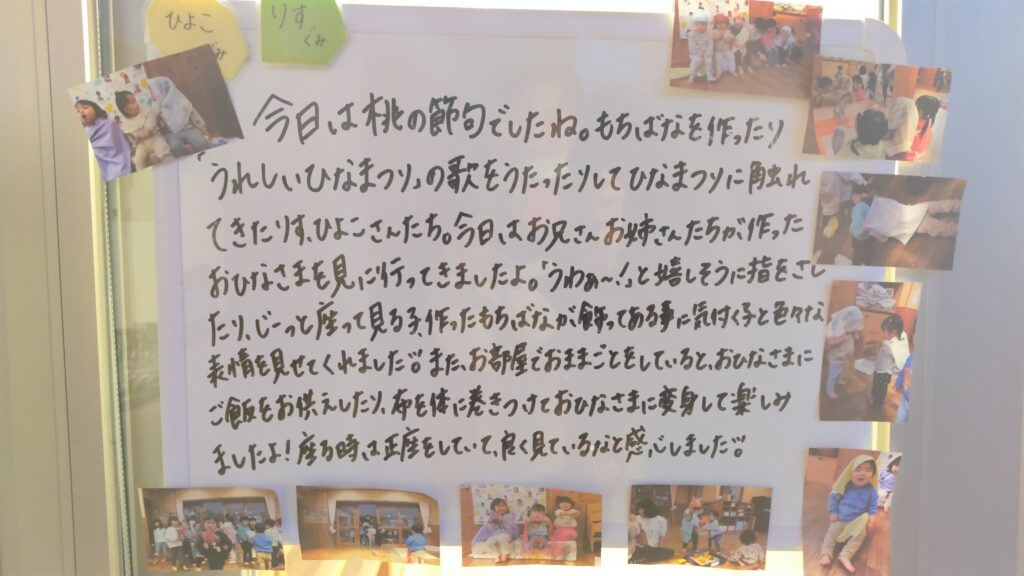 ひよこぐみ
りすぐみ
今日は桃の節句でしたね。もちばなを作ったり
「うれしいひなまつり」の歌をうたったりしてひなまつりに触れ
てきたりす、ひよこさんたち。今日はお兄さんお姉さんたちが作った
おひなさまを見に行ってきましたよ。「うわぁ〜!」と嬉しそうに指をさし
たり、じーっと座って見る子、作ったもちばなが飾ってある事に気付く子と色々な
表情を見せてくれました!!また、お部屋でおままごとをしていると、おひなさまに
ご飯をお供えしたり、布を体に巻きつけておひなさまに変身して楽しみ
ましたよ!座る時は正座をしていて、良く見ているなと感心しました!!